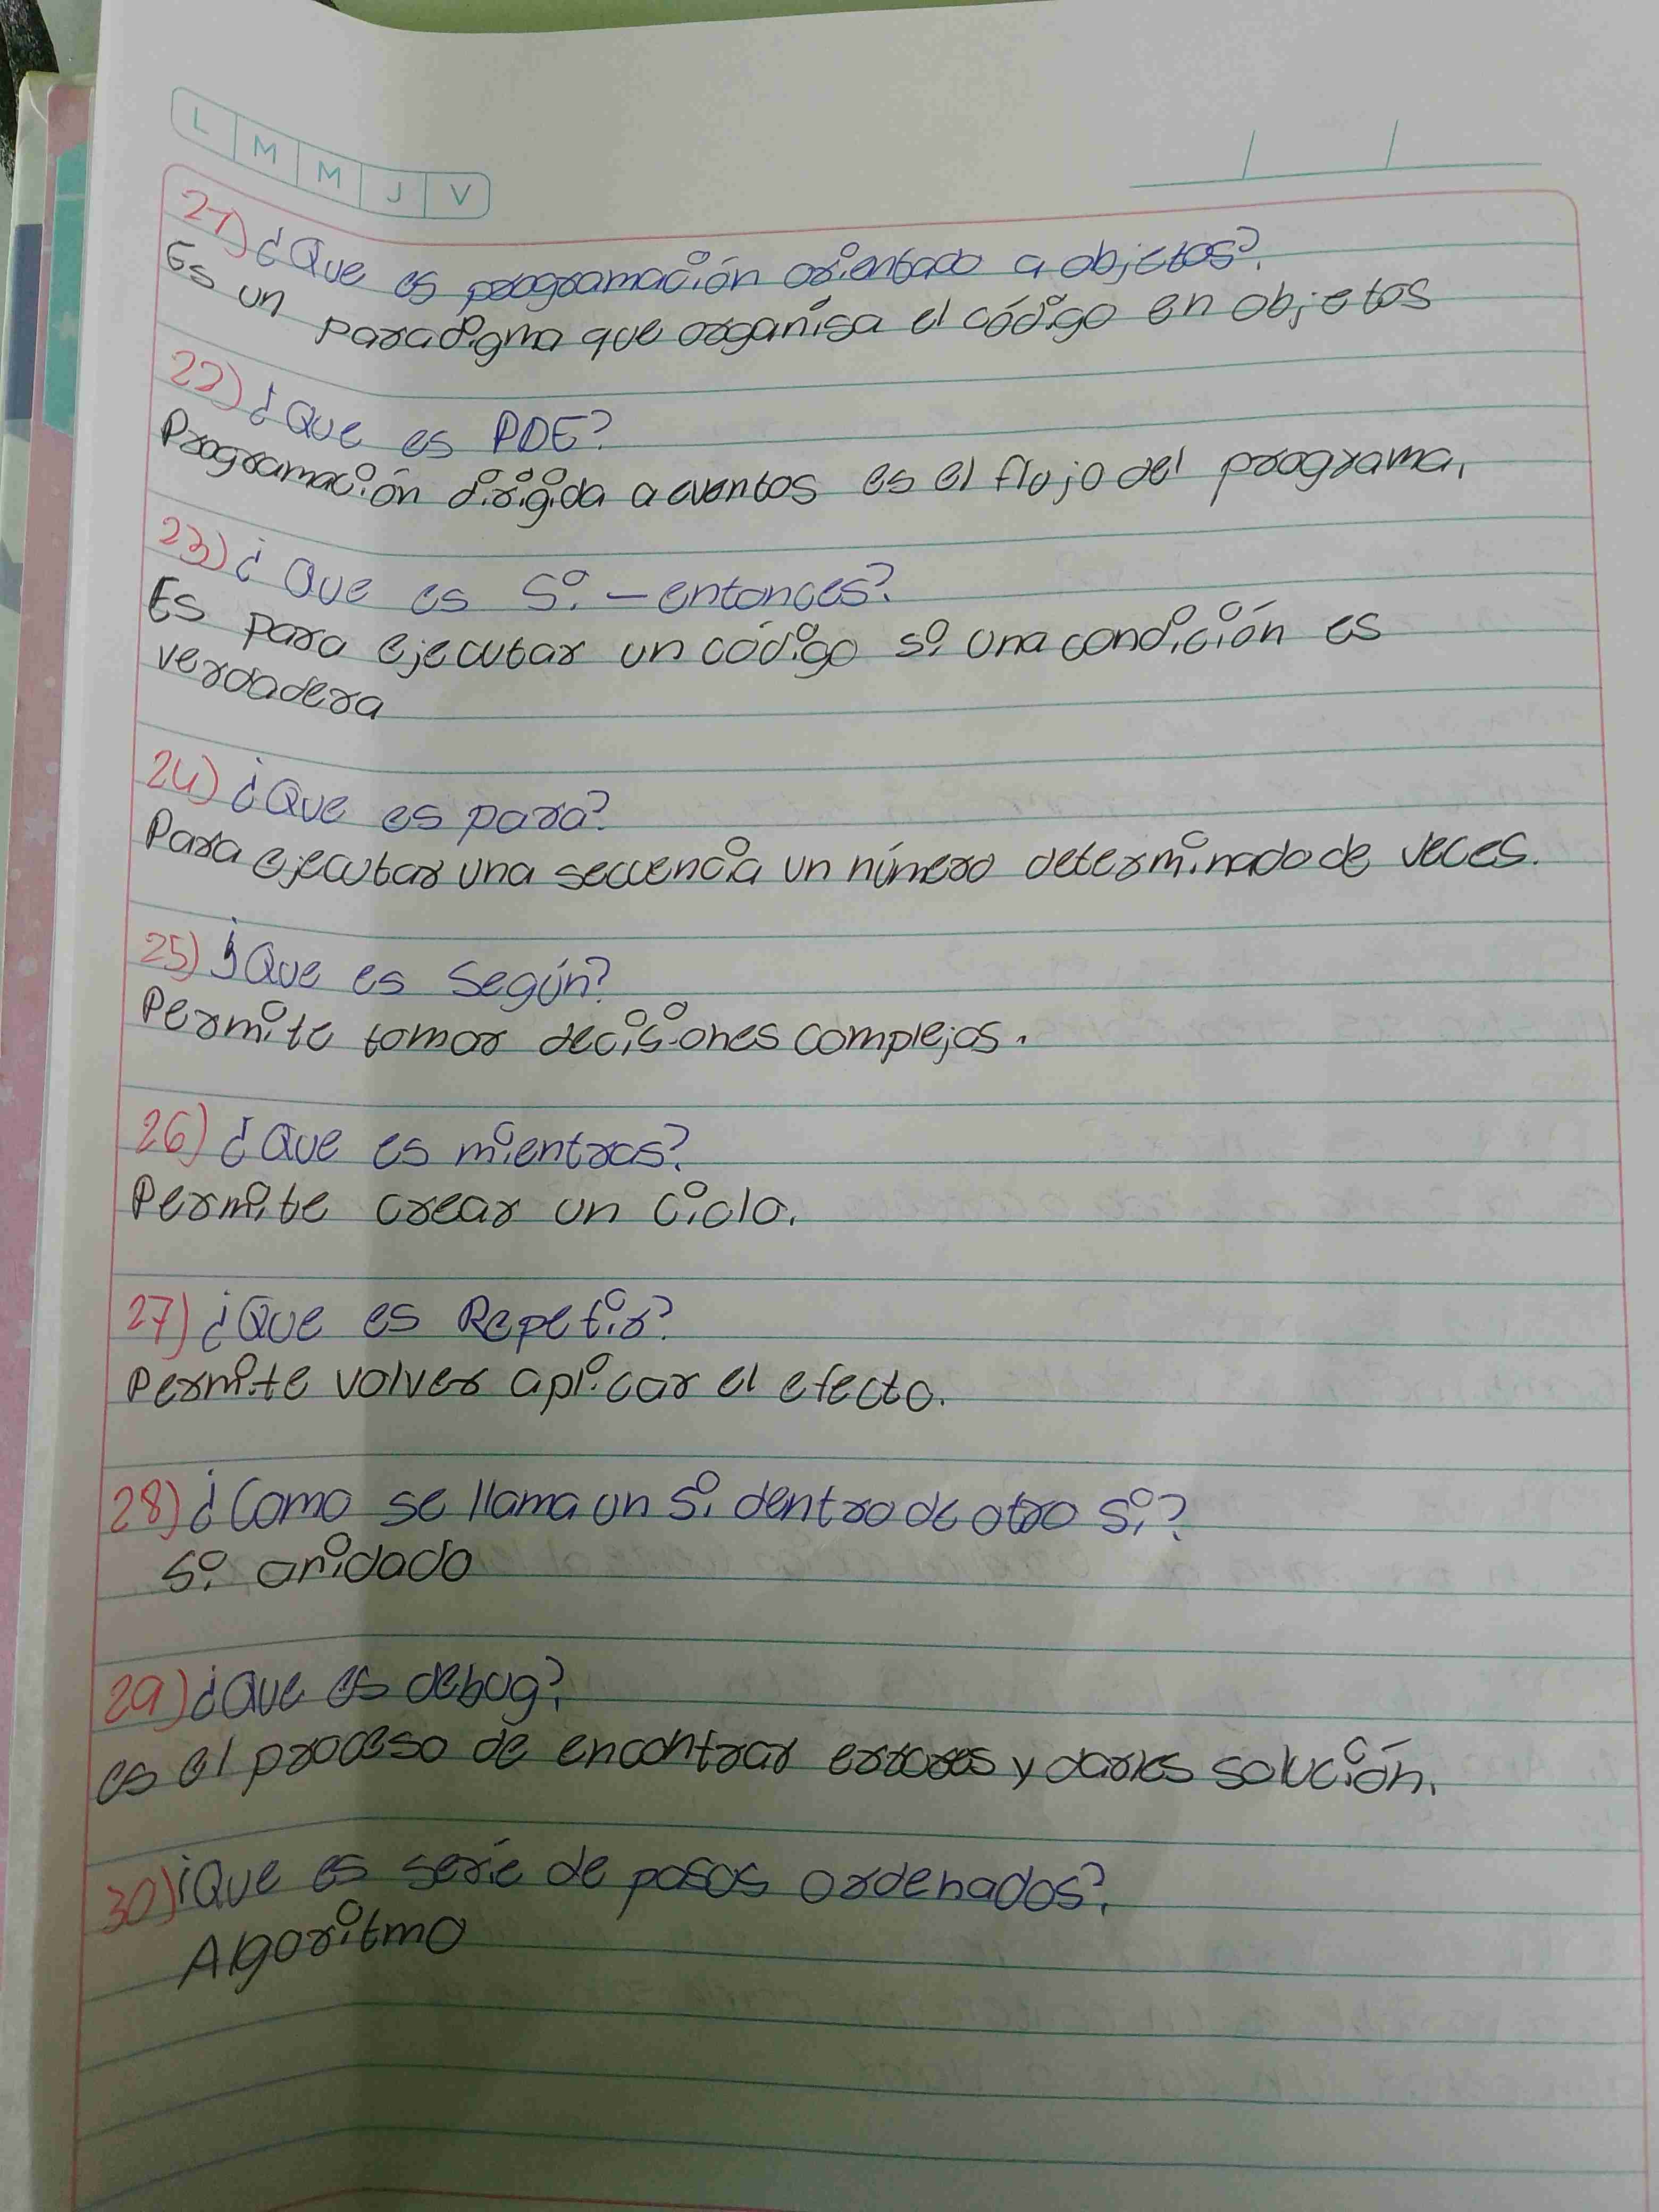 L M M J V
21) ¿Que es programación orientado a objetos?
Es un paradigma que organisa el código en objetos
22) ¿Que es PDE?
Programación dirigida a eventos es el flujo del programa.
23) ¿Que es Si - entonces?
Es para ejecutar un código si una condición es
verdadera
24) ¿Que es para?
Para ejecutar una secuencia un número determinado de veces.
25) ¿Que es Según?
Permite tomar decisiones complejas.
26) ¿Que es mientras?
Permite crear un ciclo.
27) ¿Que es Repetir?
Permite volver aplicar el efecto.
28) ¿Como se llama un Si dentro de otro Si?
Si anidado
29) ¿Que es debug?
es el proceso de encontrar errores y darles solución.
30) ¿Que es serie de pasos ordenados?
Algoritmo